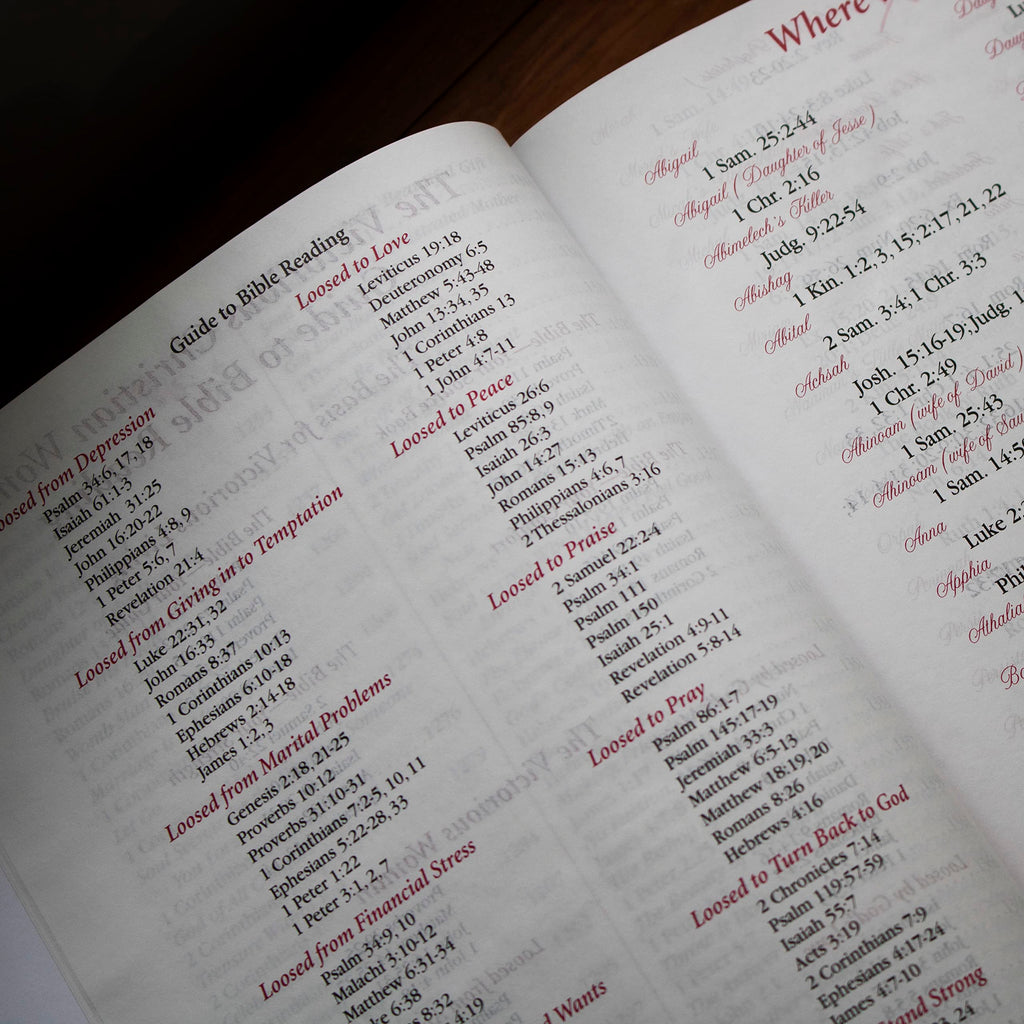 Guide to Bible Reading
Loosed from Depression
Psalm 34:6, 17, 18
Isaiah 61:1-3
Jeremiah 31:25
John 16:20-22
Philippians 4:8, 9
1 Peter 5:6, 7
Revelation 21:4
Loosed from Giving in to Temptation
Luke 22:31, 32
John 16:33
Romans 8:37
1 Corinthians 10:13
Ephesians 6:10-18
Hebrews 2:14-18
James 1:2, 3
Loosed from Marital Problems
Genesis 2:18, 21-25
Proverbs 10:12
Proverbs 31:10-31
1 Corinthians 7:25, 10, 11
Ephesians 5:22-28, 33
1 Peter 1:22
1 Peter 3:1, 2, 7
Loosed from Financial Stress
Psalm 34:9, 10
Malachi 3:10-12
Matthew 6:31-34
6:38
8:32
4:19
Wants
Loosed to Love
Leviticus 19:18
Deuteronomy 6:5
Matthew 5:43-48
John 13:34, 35
1 Corinthians 13
1 Peter 4:8
1 John 4:7-11
Loosed to Peace
Leviticus 26:6
Psalm 85:8, 9
Isaiah 26:3
John 14:27
Romans 15:13
Philippians 4:6, 7
2 Thessalonians 3:16
Loosed to Praise
2 Samuel 22:2-4
Psalm 34:1
Psalm 111
Psalm 150
Isaiah 25:1
Revelation 4:9-11
Revelation 5:8-14
Loosed to Pray
Psalm 86:1-7
Psalm 145:17-19
Jeremiah 33:3
Matthew 6:5-13
Matthew 18:19, 20
Romans 8:26
Hebrews 4:16
Loosed to Turn Back to God
2 Chronicles 7:14
Psalm 119:57-59
Isaiah 55:7
Acts 3:19
2 Corinthians 7:9
Ephesians 4:17-24
James 4:7-10
Stand Strong
23, 24
Where
Abigail
1 Sam. 25:2-44
Abigail ( Daughter of Jesse )
1 Chr. 2:16
Abimelech's Killer
Judg. 9:22-54
Abishag
1 Kin. 1:2, 3, 15; 2:17, 21, 22
Abital
2 Sam. 3:4; 1 Chr. 3:3
Achsah
Josh. 15:16-19; Judg.
1 Chr. 2:49
Ahinoam (wife of David)
1 Sam, 25:43
Ahinoam (wife of
1 Sam. 14:
Anna
Luke 2:
Apphia
Athalia